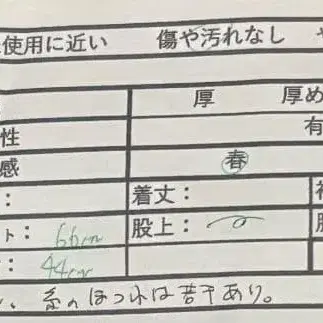 使用に近い 傷や汚れなし
厚 厚め
性 有
感 春
： 着丈：
ト： 66cm 股上：
： 44cm
、糸のほつれは若干あり。